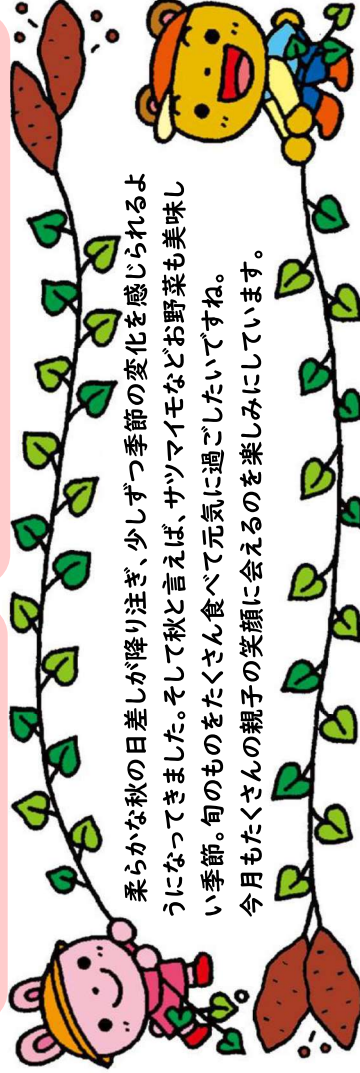 柔らかな秋の日差しが降り注ぎ、少しずつ季節の変化を感じられるよ
うになってきました。そして秋と言えば、サツマイモなどお野菜も美味し
い季節。旬のものをたくさん食べて元気に過ごしたいですね。
今月もたくさんの親子の笑顔に会えるのを楽しみにしています。